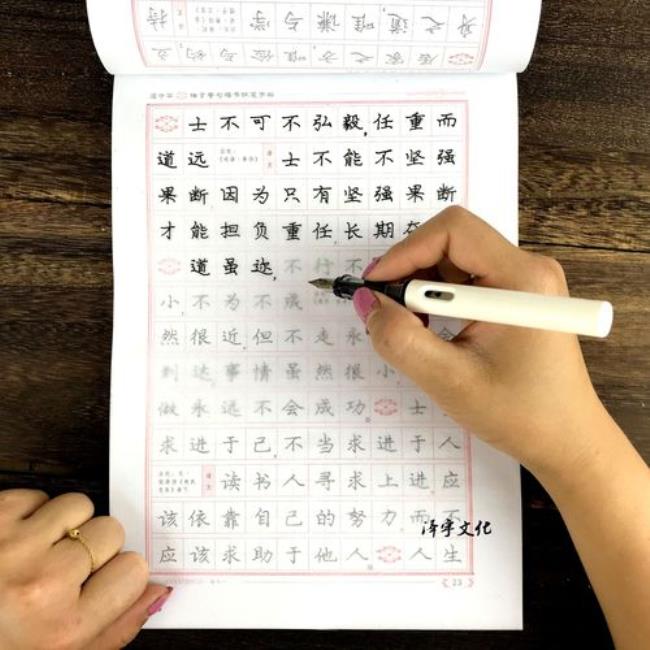 居家之方,唯俭与约,立
身之道,唯谦与学 持
士不可不弘毅,任重而
道远 士不能不坚强
果断,因为只有坚强果断
才能担负重任,长期
道虽迩,不行不
小,不为不成
然很近,但不走永 会
到达,事情虽然很小,
做永远不会成功。士
求进于己,不当求进于人
译文 读书人寻求上进,应
该依靠自己的努力,而不
泽宇文化
应该求助于他人。人生
23